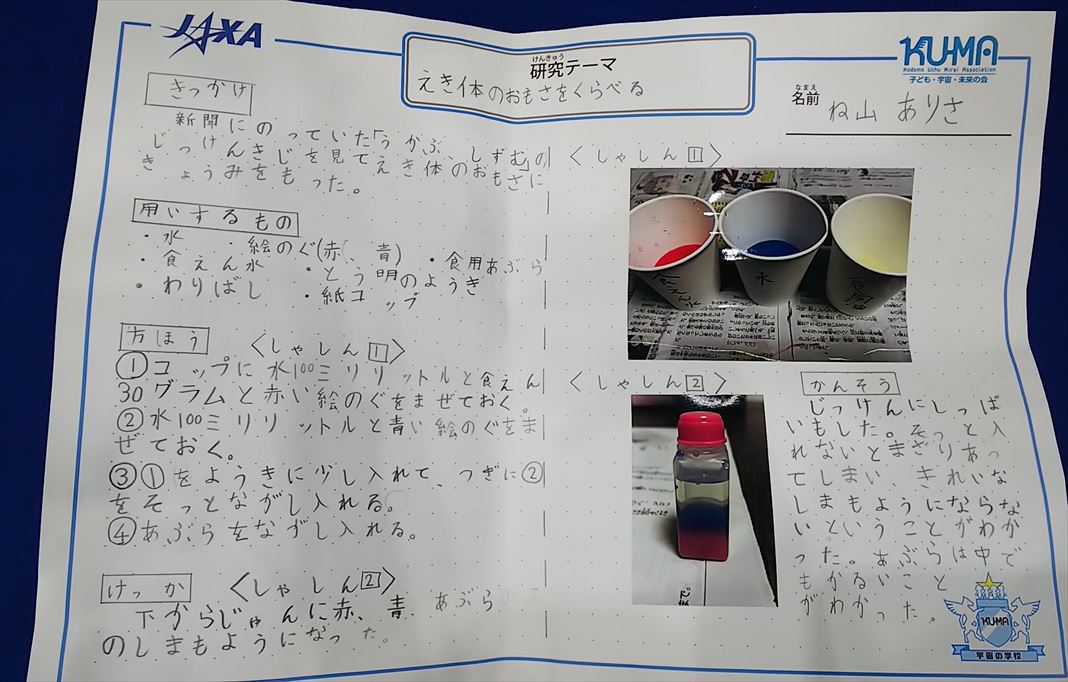 JAXA
けんきゅう
研究テーマ
えき体のおもさをくらべる
KU-MA
Kodomo Uchu Mirai Association
子ども・宇宙・未来の会
なまえ
名前
ね山 ありさ
きっかけ
新聞にのっていた「うかぶ しずむ」の
じっけんきじを見てえき体のおもさに
きょうみをもった。
用いするもの
・水 ・絵のぐ(赤、青) ・食用あぶら
・食えん水 ・とう明のようき
・わりばし ・紙コップ
方ほう 〈しゃしん1〉
①コップに水100ミリリットルと食えん
30グラムと赤い絵のぐをまぜておく。
②水100ミリリットルと青い絵のぐをま
ぜておく。
③①をようきに少し入れて、つぎに②
をそっとながし入れる。
④あぶらをながし入れる。
けっか 〈しゃしん2〉
下からじゅんに赤、青、あぶら
のしまもようになった。
〈しゃしん1〉
水
〈しゃしん2〉
かんそう
じっけんにしっぱ
いもした。そっと入
れないとまざりあっ
てしまい、きれいな
しまもようにならな
いということがわか
った。あぶらは中で
もかるいこと
がわかった。
KUMA
宇宙の学校